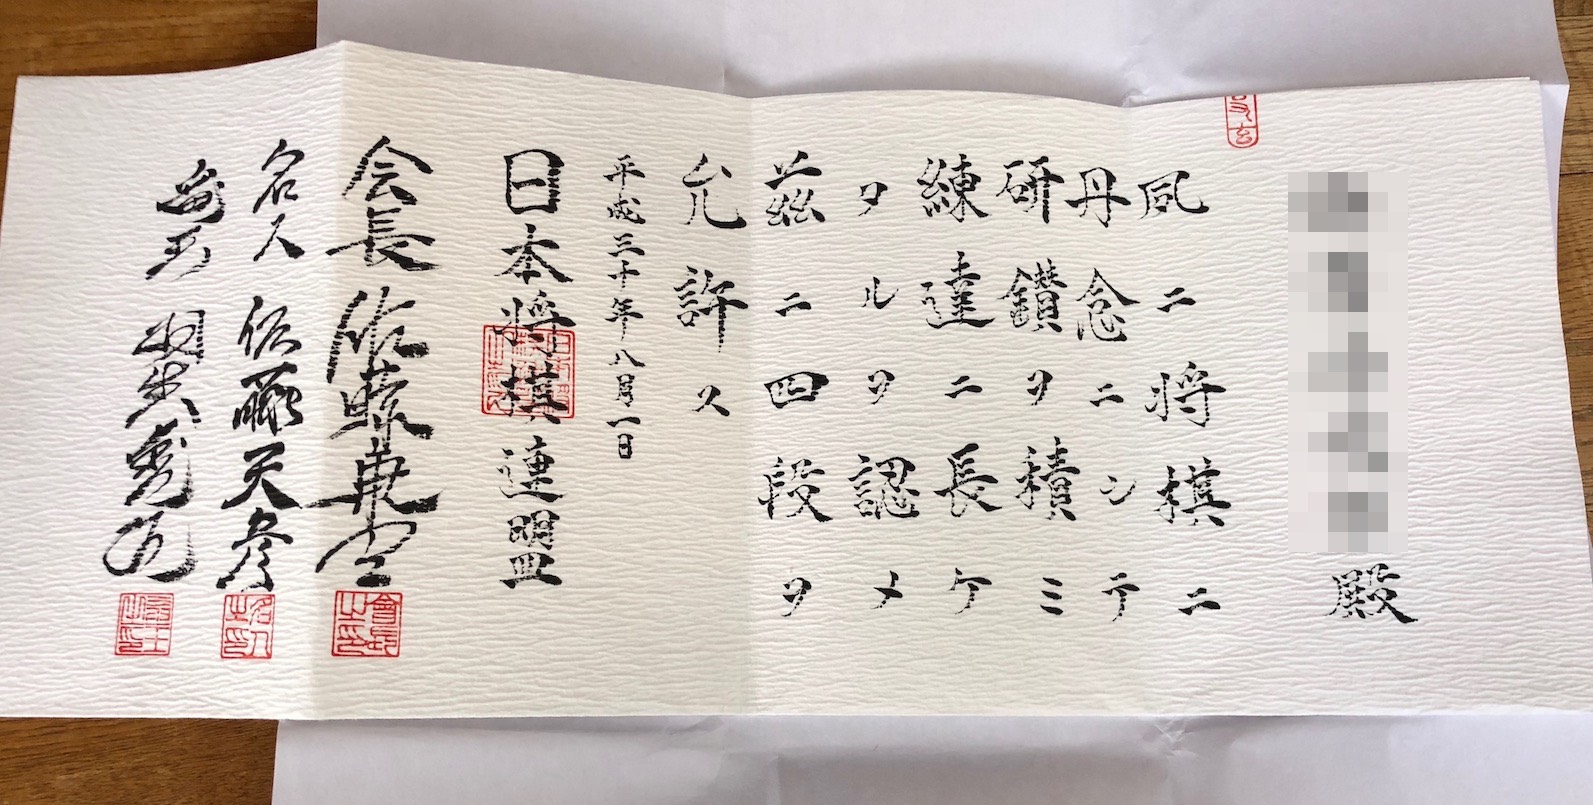 殿
夙ニ将棋ニ
丹念ニシテ
研鑽ヲ積ミ
練達ニ長ケ
タルヲ認メ
茲ニ四段ヲ
允許ス
平成三十年八月一日
日本将棋連盟
会長 佐藤康光
名人 佐藤天彦
竜王 羽生善治
會長之印
名人之印